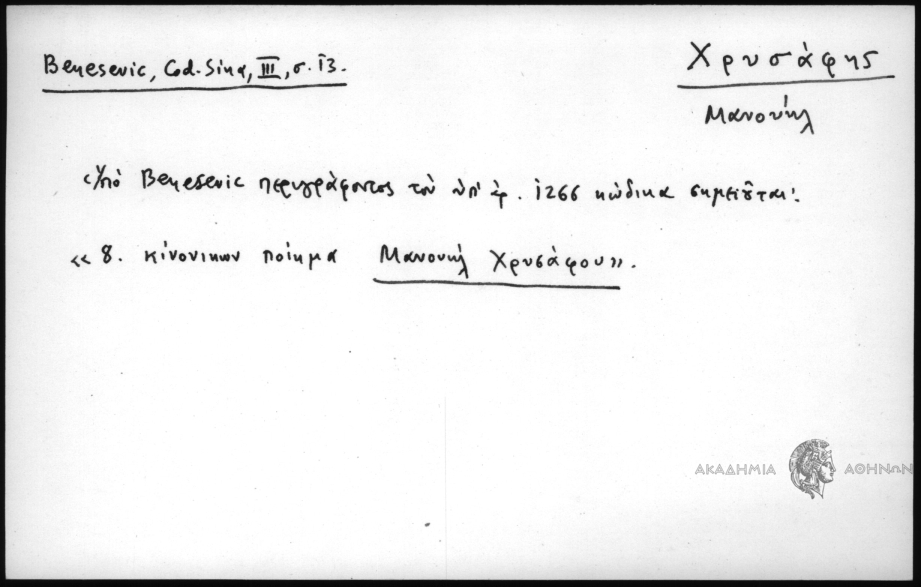 Benesevic, Cod. Sina, III, σ. 13.
Χρυσάφης
Μανουήλ
Ὑπό Benesevic περιγράφοντος τόν ὑπ' ἀρ. 1266 κώδικα σημειοῦται:
«8. κίνονικων ποίημα Μανουήλ Χρυσάφου».
ΑΚΑΔΗΜΙΑ ΑΘΗΝΩΝ